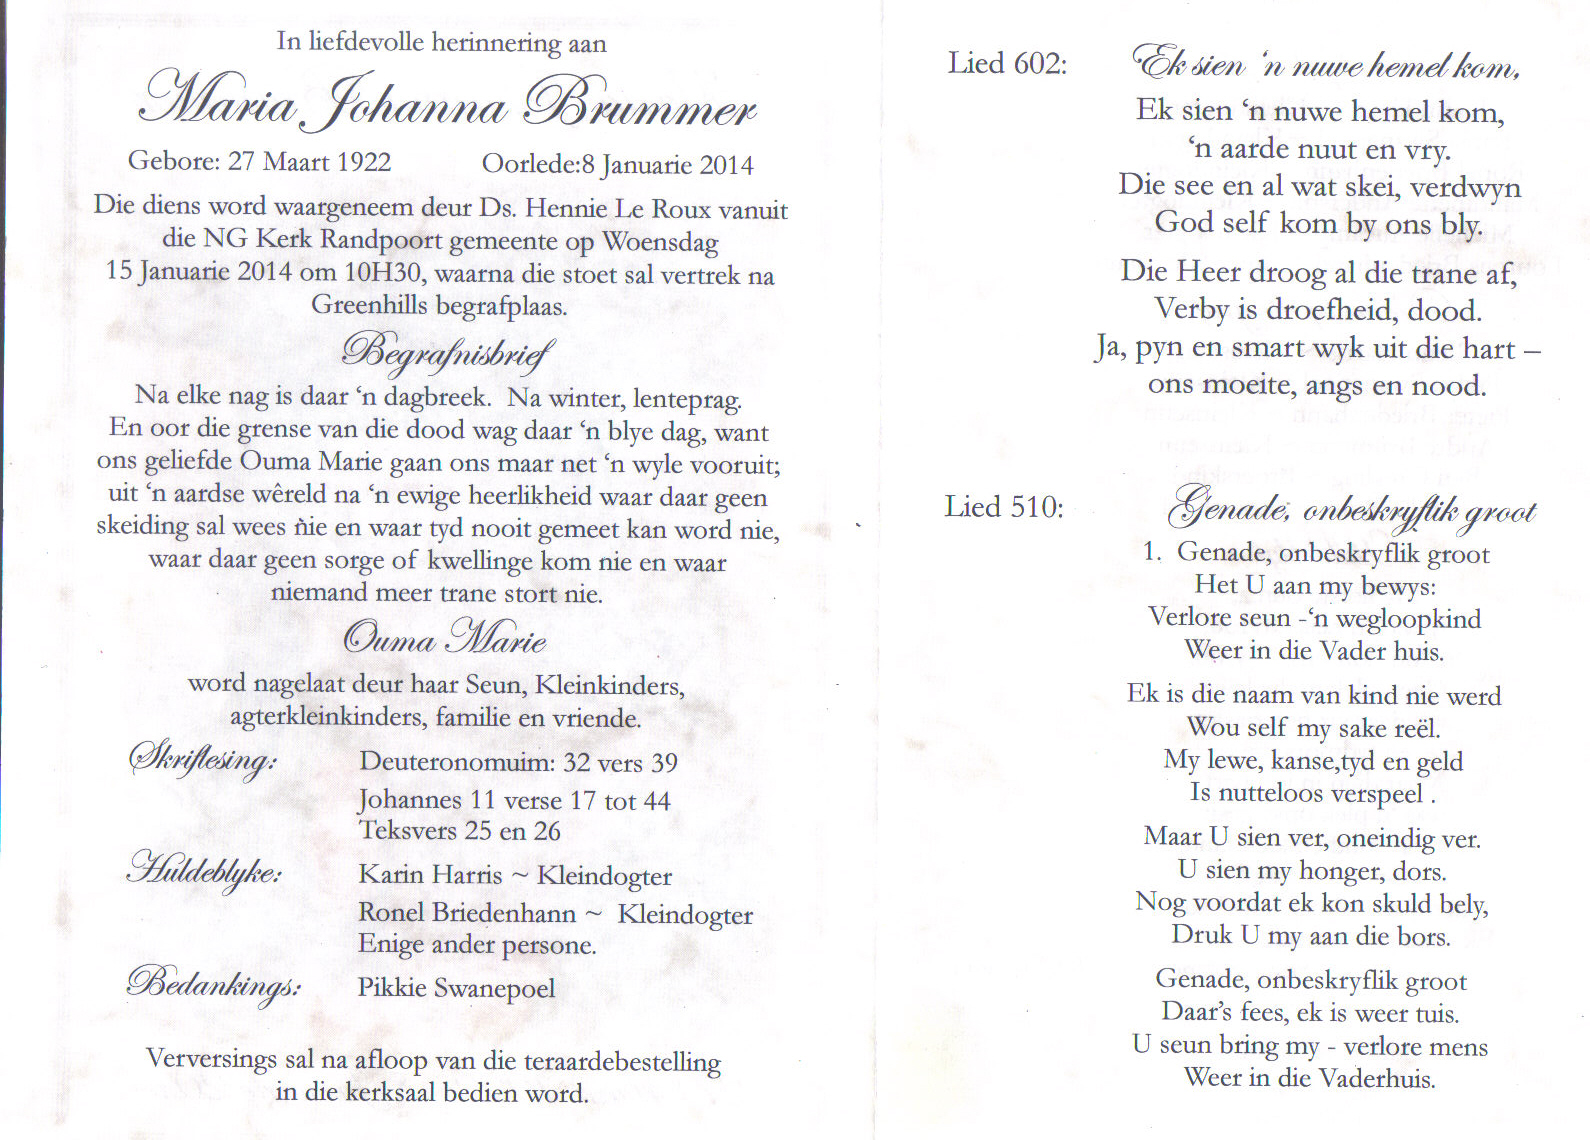 In liefdevolle herinnering aan
Maria Johanna Brummer
Gebore: 27 Maart 1922 Oorlede:8 Januarie 2014
Die diens word waargeneem deur Ds. Hennie Le Roux vanuit
die NG Kerk Randpoort gemeente op Woensdag
15 Januarie 2014 om 10H30, waarna die stoet sal vertrek na
Greenhills begrafplaas.
Begrafnisbrief
Na elke nag is daar ‘n dagbreek. Na winter, lenteprag.
En oor die grense van die dood wag daar ‘n blye dag, want
ons geliefde Ouma Marie gaan ons maar net ‘n wyle vooruit;
uit ‘n aardse wêreld na ‘n ewige heerlikheid waar daar geen
skeiding sal wees nie en waar tyd nooit gemeet kan word nie,
waar daar geen sorge of kwellinge kom nie en waar
niemand meer trane stort nie.
Ouma Marie
word nagelaat deur haar Seun, Kleinkinders,
agterkleinkinders, familie en vriende.
Skriflesing: Deuteronomuim: 32 vers 39
Johannes 11 verse 17 tot 44
Teksvers 25 en 26
Huldeblyke: Karin Harris ~ Kleindogter
Ronel Briedenhann ~ Kleindogter
Enige ander persone.
Bedankings: Pikkie Swanepoel
Verversings sal na afloop van die teraardebestelling
in die kerksaal bedien word.
Lied 602: Ek sien ‘n nuwe hemel kom,
Ek sien ‘n nuwe hemel kom,
‘n aarde nuut en vry.
Die see en al wat skei, verdwyn
God self kom by ons bly.
Die Heer droog al die trane af,
Verby is droefheid, dood.
Ja, pyn en smart wyk uit die hart –
ons moeite, angs en nood.
Lied 510: Genade, onbeskryflik groot
1. Genade, onbeskryflik groot
Het U aan my bewys:
Verlore seun -‘n wegloopkind
Weer in die Vader huis.
Ek is die naam van kind nie werd
Wou self my sake reël.
My lewe, kanse,tyd en geld
Is nutteloos verspeel .
Maar U sien ver, oneindig ver.
U sien my honger, dors.
Nog voordat ek kon skuld bely,
Druk U my aan die bors.
Genade, onbeskryflik groot
Daar’s fees, ek is weer tuis.
U seun bring my - verlore mens
Weer in die Vaderhuis.